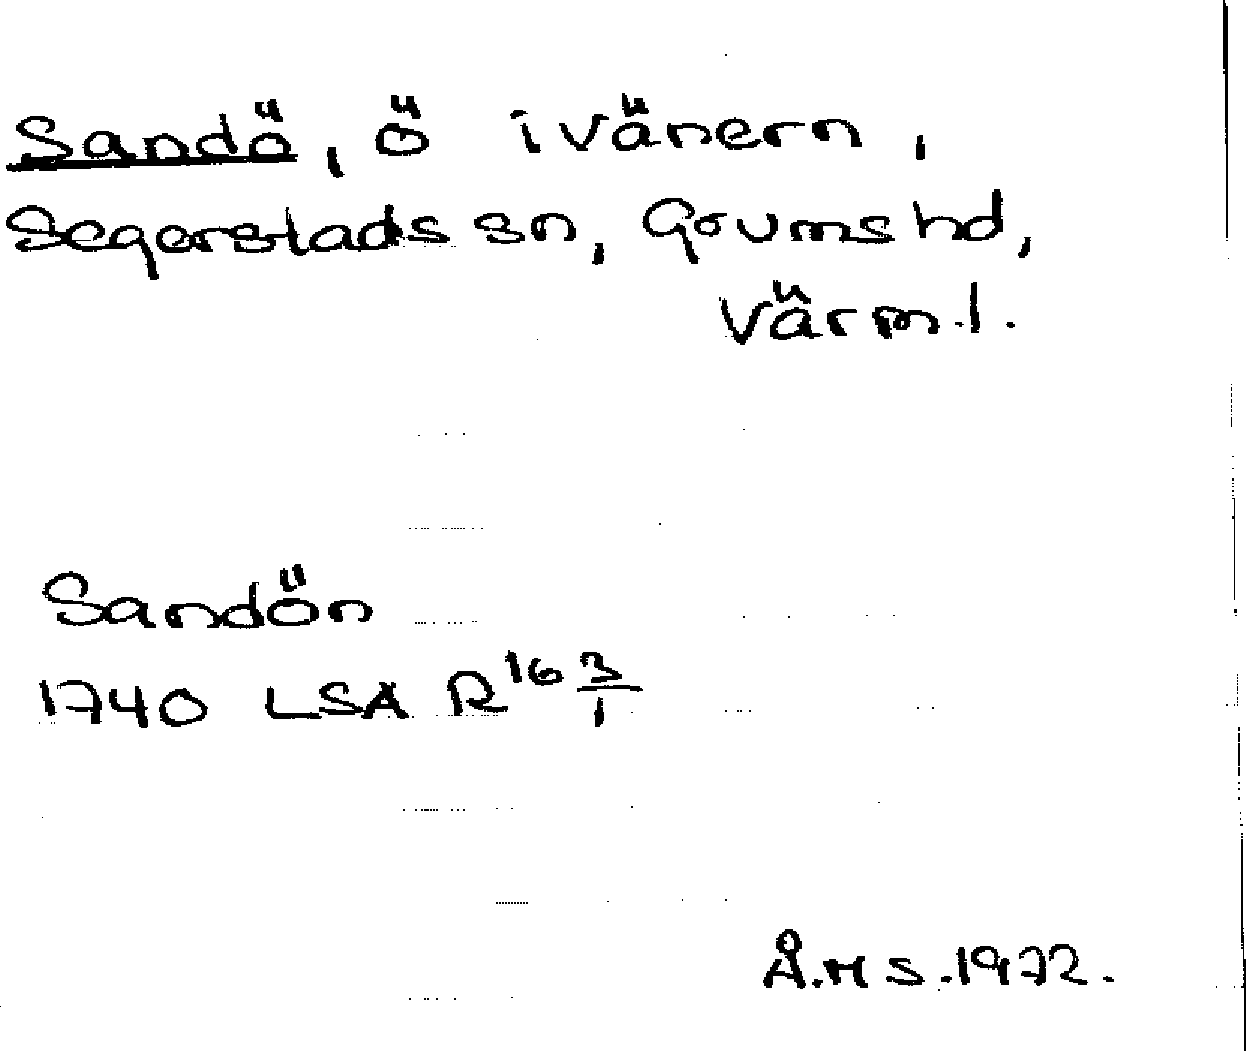 Sandö, ö i vänern,
Segerstads sn, Grums hd,
Värml.
Sandön
1740 LSA R16 3/1
Å.H S.1972.